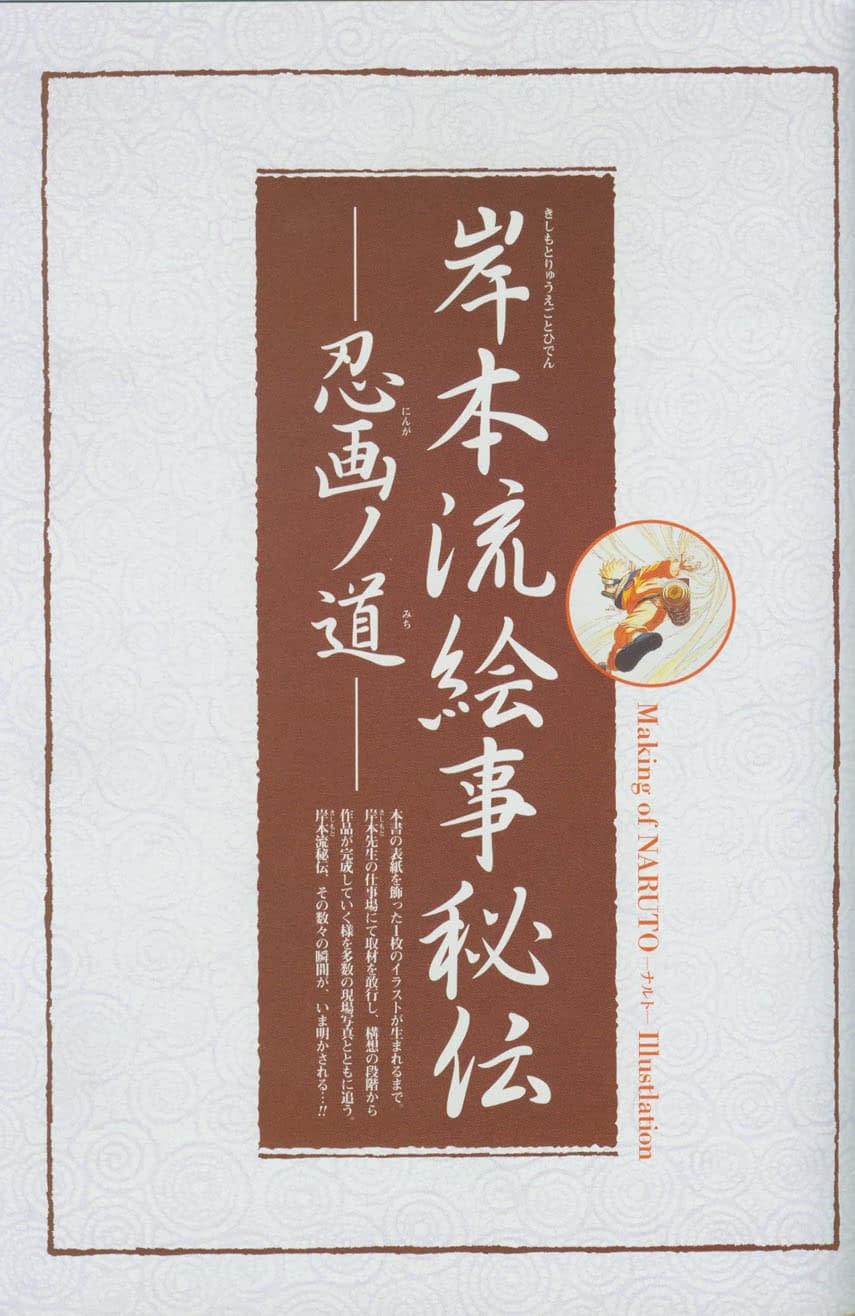 Making of NARUTO ―ナルト― Illustlation
きしもとりゅうえごとひでん
岸本流絵事秘伝
にんが
みち
忍画ノ道
本書の表紙を飾った1枚のイラストが生まれるまで。
きしもと
岸本先生の仕事場にて取材を敢行し、構想の段階から
作品が完成していく様を多数の現場写真とともに追う。
きしもと
岸本流秘伝、その数々の瞬間が、いま明かされる…!!